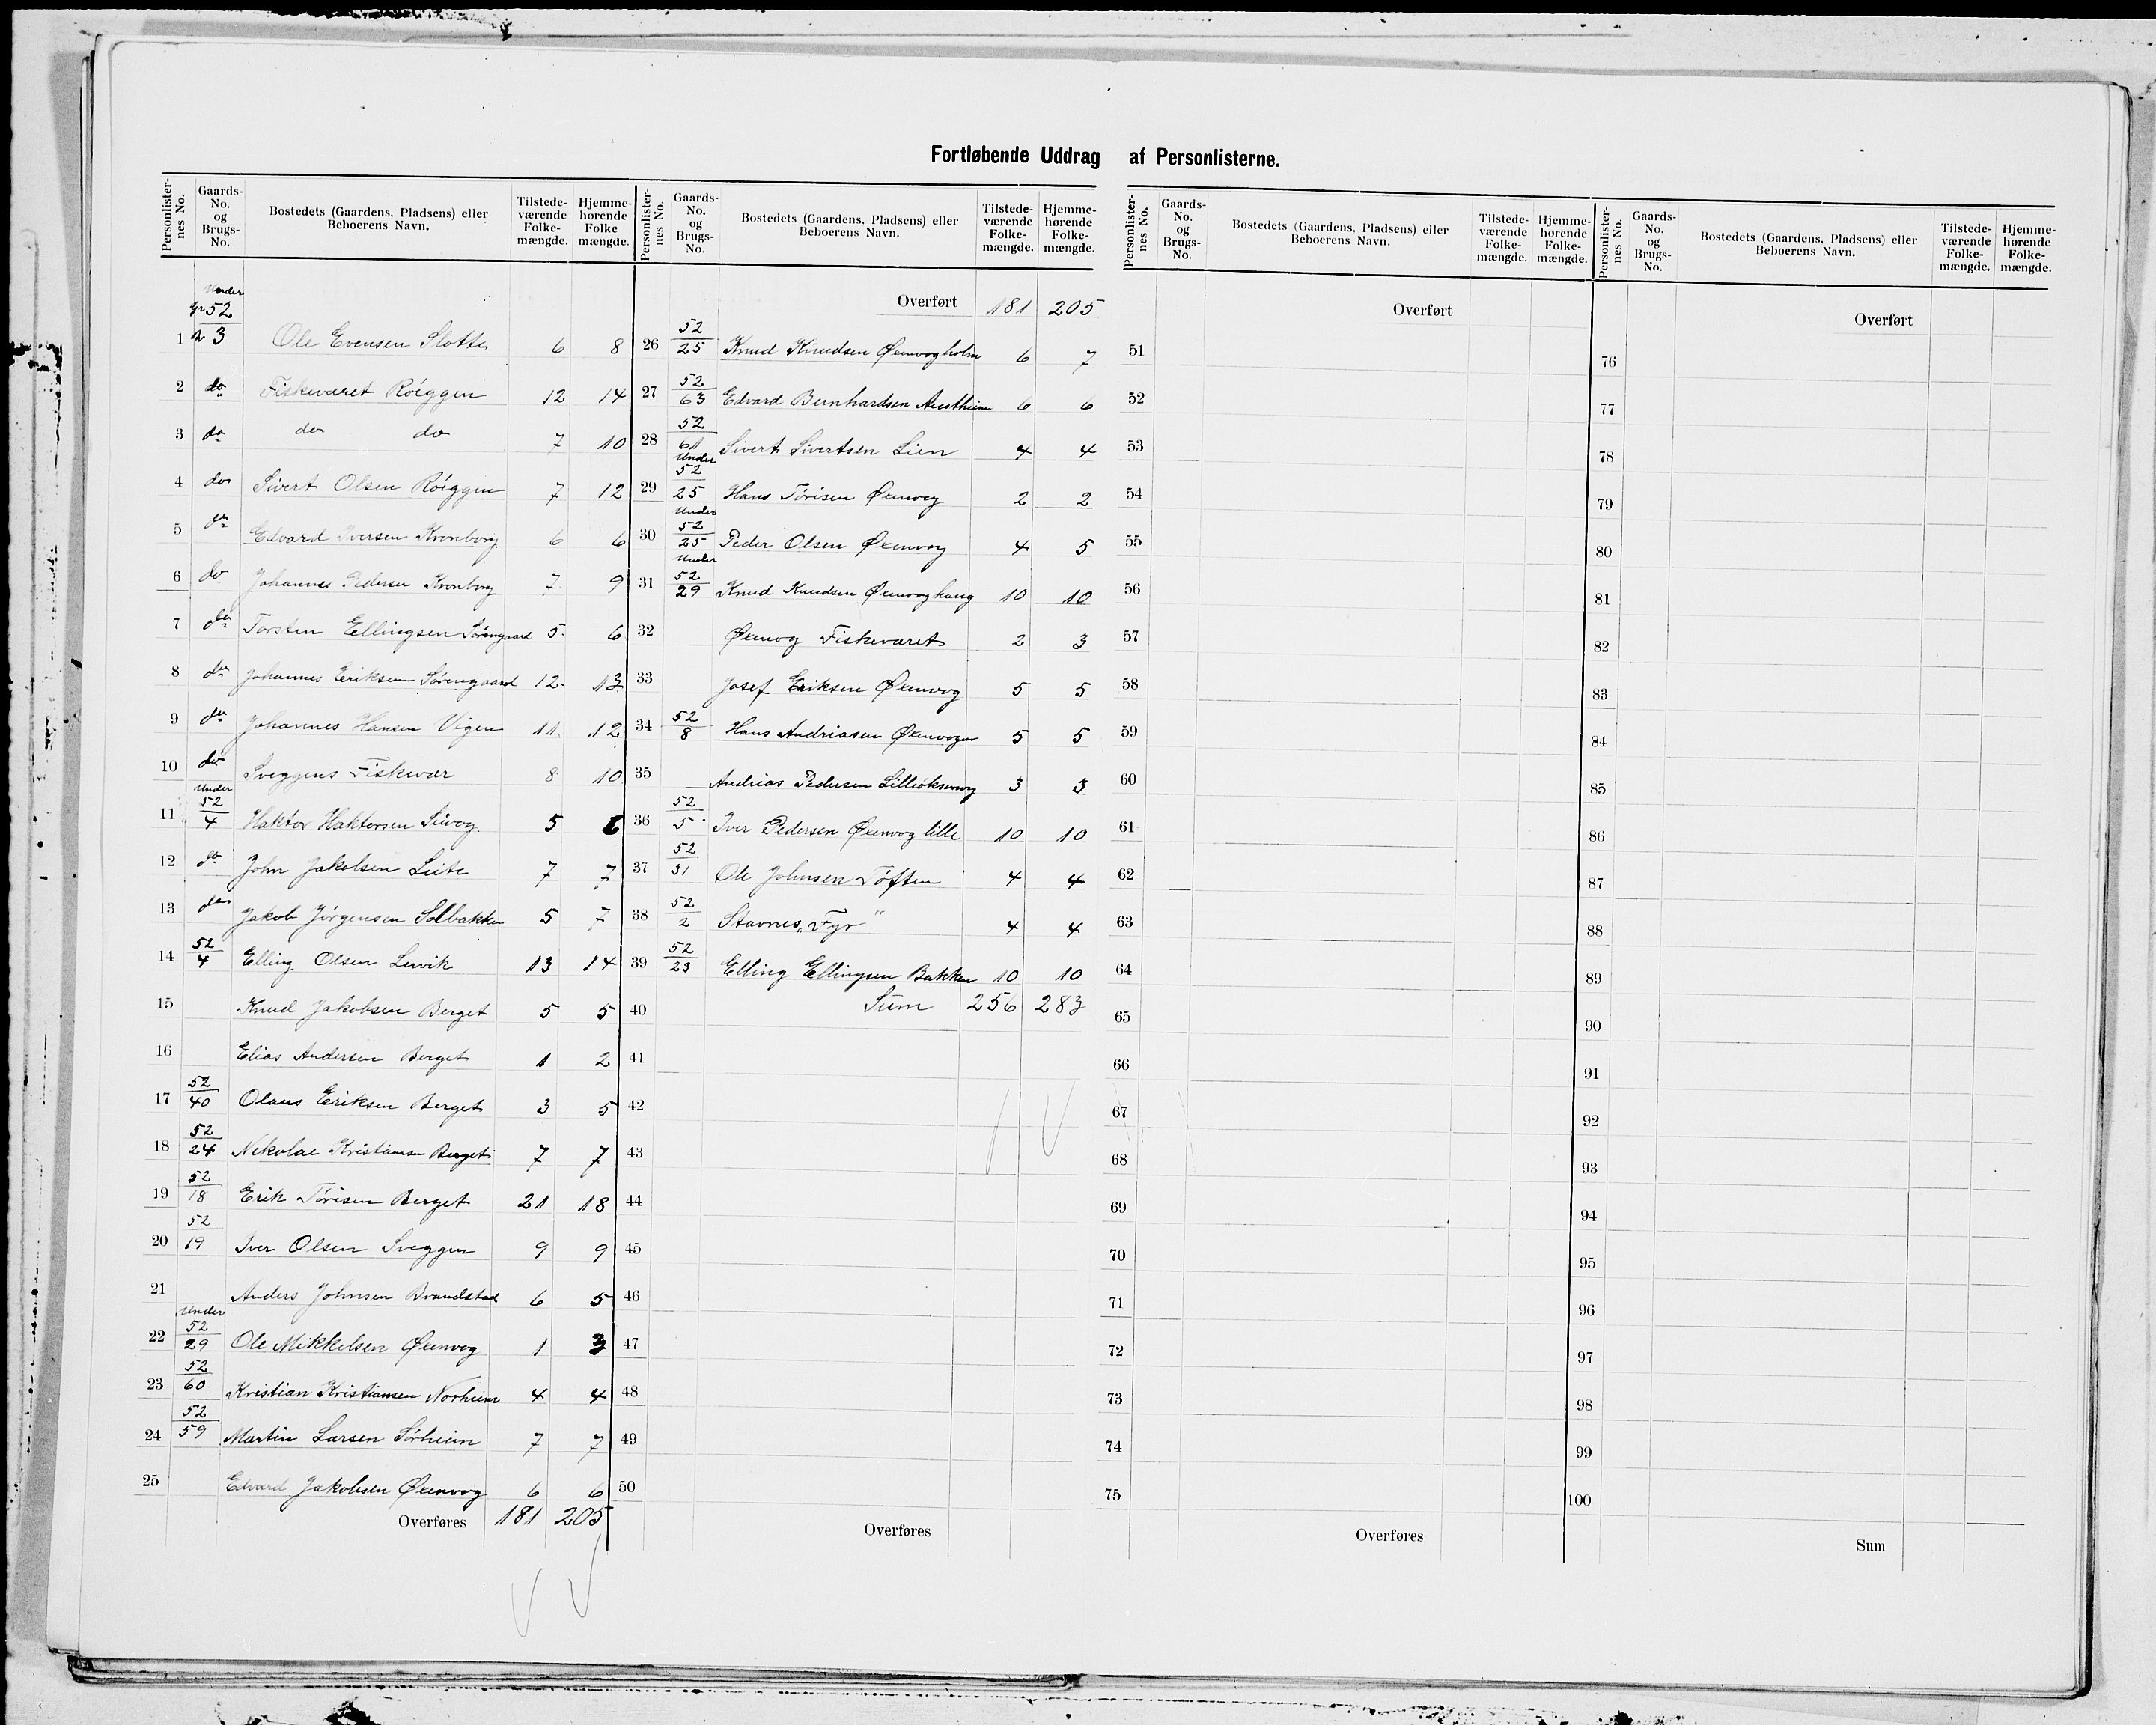 Fortløbende Uddrag af Personlisterne.
Personlister-nes No. Gaards-No. og Brugs-No. Bostedets (Gaardens, Pladsens) eller Beboerens Navn. Tilstede-værende Folke-mængde. Hjemme-hørende Folke mængde.
Under
Gr 52
1 Br 3 Ole Evensen Slotte 6 8
2 do Fiskeværet Röeggen 12 14
3 do do do 7 10
4 do Sivert Olsen Röeggen 7 12
5 do Edvard Iversen Kronborg 6 6
6 do Johannes Pedersen Kronborg 7 9
7 do Torsten Ellingsen Sörengaard 5 6
8 do Johannes Eriksen Sörengaard 12 13
9 do Johannes Hansen Vigen 11 12
10 do Sveggens Fiskevær 8 10
Under
11 52/4 Haktor Haktorsen Sievog 5
12 do John Jakobsen Leite 7 7
13 do Jakob Jörgensen Solbakken 5 7
14 52/4 Elling Olsen Lervik 13 14
15 Knud Jakobsen Berget 5 5
16 Elias Andersen Berget 1 2
17 52/40 Olaus Eriksen Berget 3 5
18 52/24 Nikolai Kristiansen Berget 7 7
19 52/18 Erik Törisen Berget 21 18
20 52/19 Iver Olsen Sveggen 9 9
21 Anders Johnsen Brandstad 6 5
Under
22 52/29 Ole Mikkelsen Øxenvog 1 3
23 52/60 Kristian Kristiansen Norheim 4 4
24 52/59 Martin Larsen Sörheim 7 7
25 Edvard Jakobsen Øxenvog 6 6
Overføres 181 205
Personlister-nes No. Gaards-No. og Brugs-No. Bostedets (Gaardens, Pladsens) eller Beboerens Navn. Tilstede-værende Folke-mængde. Hjemme-hørende Folke-mængde.
Overført 181 205
26 52/25 Knud Knudsen Øxenvogholm 6 7
27 52/63 Edvard Bernhardsen Austheim 6 6
28 52/61 Sivert Sivertsen Lien 4 4
Under
29 52/25 Hans Törisen Øxenvog 2 2
Under
30 52/25 Peder Olsen Øxenvog 4 5
Under
31 52/29 Knud Knudsen Øxenvoghaug 10 10
32 Øxenvog Fiskeværet 2 3
33 Josef Eriksen Øxenvog 5 5
34 52/8 Hans Andriasen Øxenvogen 5 5
35 Andrias Pedersen Lilleöksenvog 3 3
36 52/5 Iver Pedersen Øxenvog lille 10 10
37 52/31 Ole Johnsen Töften 4 4
38 52/2 Stavnes „Fyr" 4 4
39 52/23 Elling Ellingsen Bakken 10 10
40 Sum 256 283
41
42
43
44
45
46
47
48
49
50
Overføres
Personlister-nes No. Gaards-No. og Brugs-No. Bostedets (Gaardens, Pladsens) eller Beboerens Navn. Tilstede-værende Folke-mængde. Hjemme-hørende Folke-mængde.
Overført
51
52
53
54
55
56
57
58
59
60
61
62
63
64
65
66
67
68
69
70
71
72
73
74
75
Overføres
Personlister-nes No. Gaards-No. og Brugs-No. Bostedets (Gaardens, Pladsens) eller Beboerens Navn. Tilstede-værende Folke-mængde. Hjemme-hørende Folke-mængde.
Overført
76
77
78
79
80
81
82
83
84
85
86
87
88
89
90
91
92
93
94
95
96
97
98
99
100
Sum